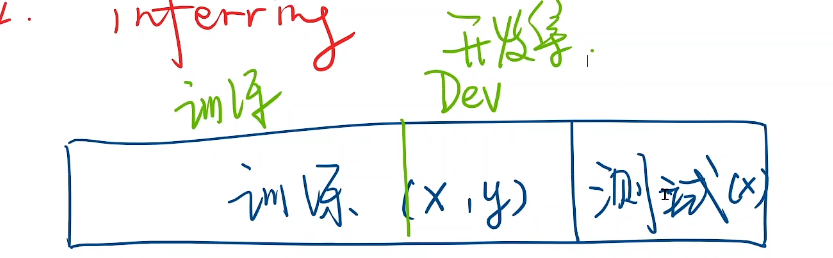 inferring
开发集.
训练 Dev
训练 (x, y) 测试(x)